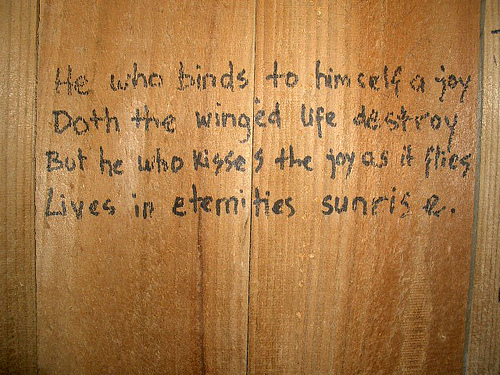 He who binds to himself a joy
Doth the wingéd life destroy
But he who kisses the joy as it flies
Lives in eternities sunrise.